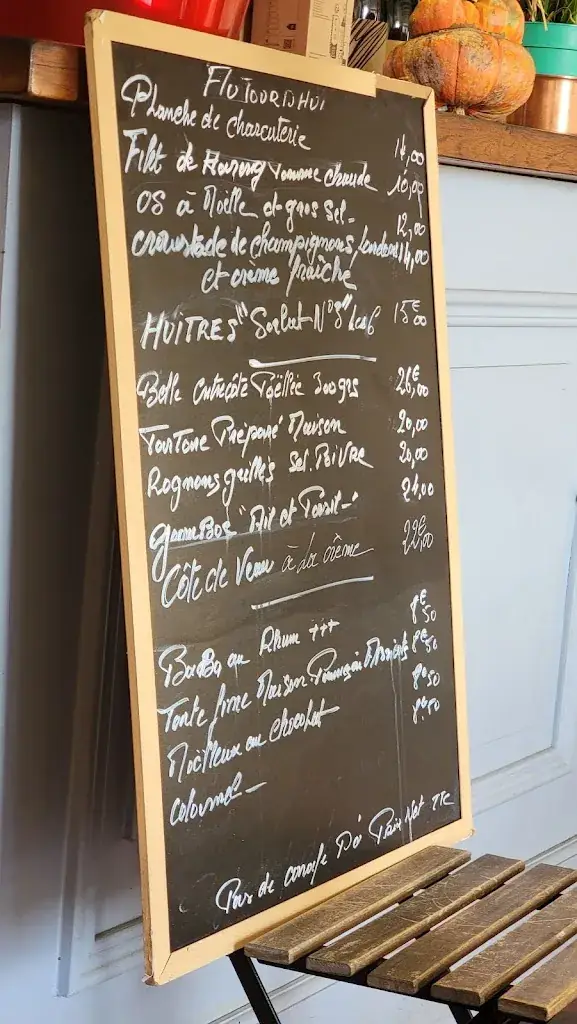 AUJOURD'HUI
Planche de charcuterie 14,00
Filet de Hareng Pomme chaude 10,00
OS à Moëlle et gros Sel- 12,00
croustade de champignons, 14,00
et crème fraîche
HUITRES " N°3" Les 6 15€00
Belle entrecôte Poëllée 300grs 26€,00
TarTare Préparé Maison 20,00
Rognons grillés Sel. POIVRE 20,00
gamBas "Ail et Persil-" 24,00
Côte de Veau à la Crème 22€,00
BaBa au Rhum +++ 8€50
Tarte fine Maison Pommes 8€50
Moëlleux au chocolat 8€50
colonnel- 8€50
Pas de